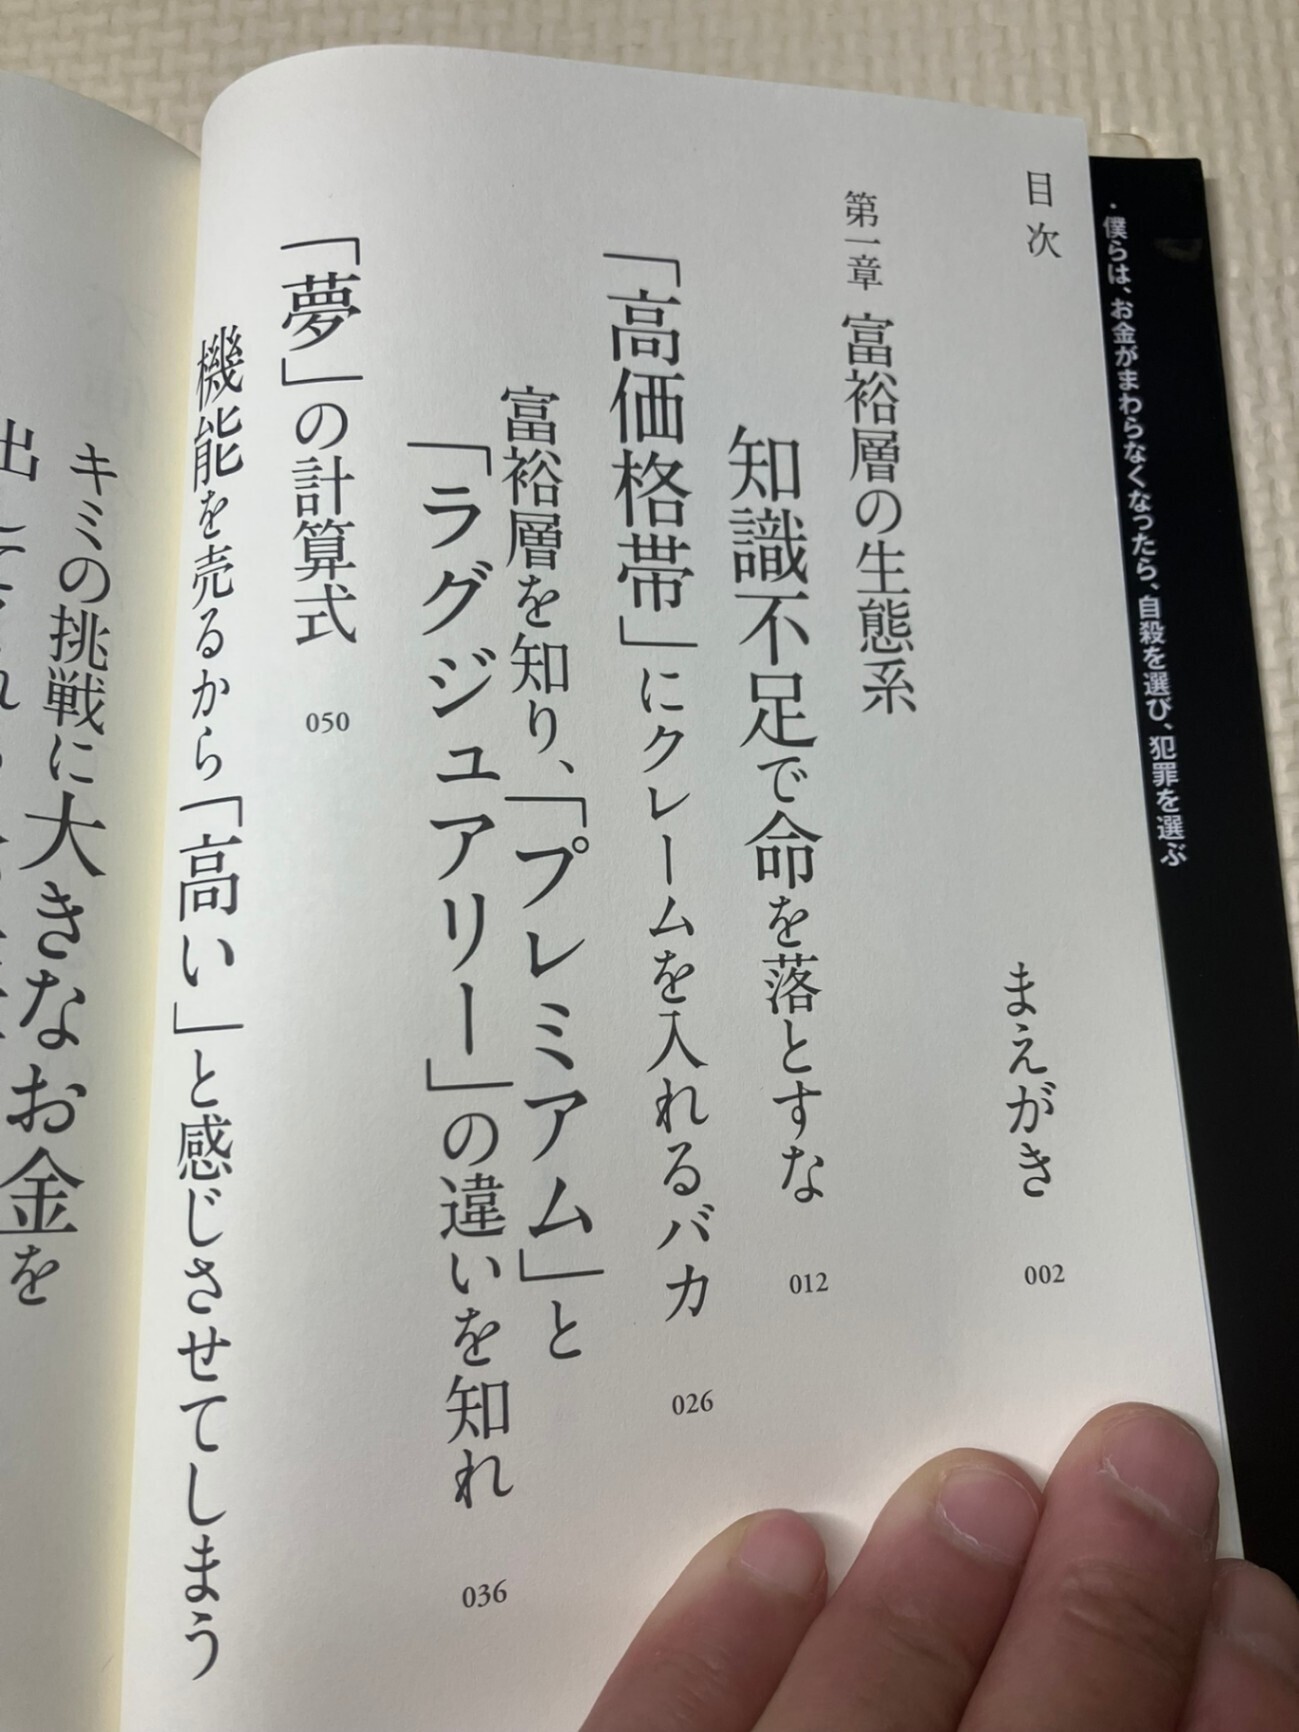 ・僕らは、お金がまわらなくなったら、自殺を選び、犯罪を選ぶ
目次
まえがき 002
第一章 富裕層の生態系
知識不足で命を落とすな 012
「高価格帯」にクレームを入れるバカ 026
富裕層を知り、「プレミアム」と
「ラグジュアリー」の違いを知れ 036
「夢」の計算式 050
機能を売るから「高い」と感じさせてしまう
キミの挑戦に大きなお金を